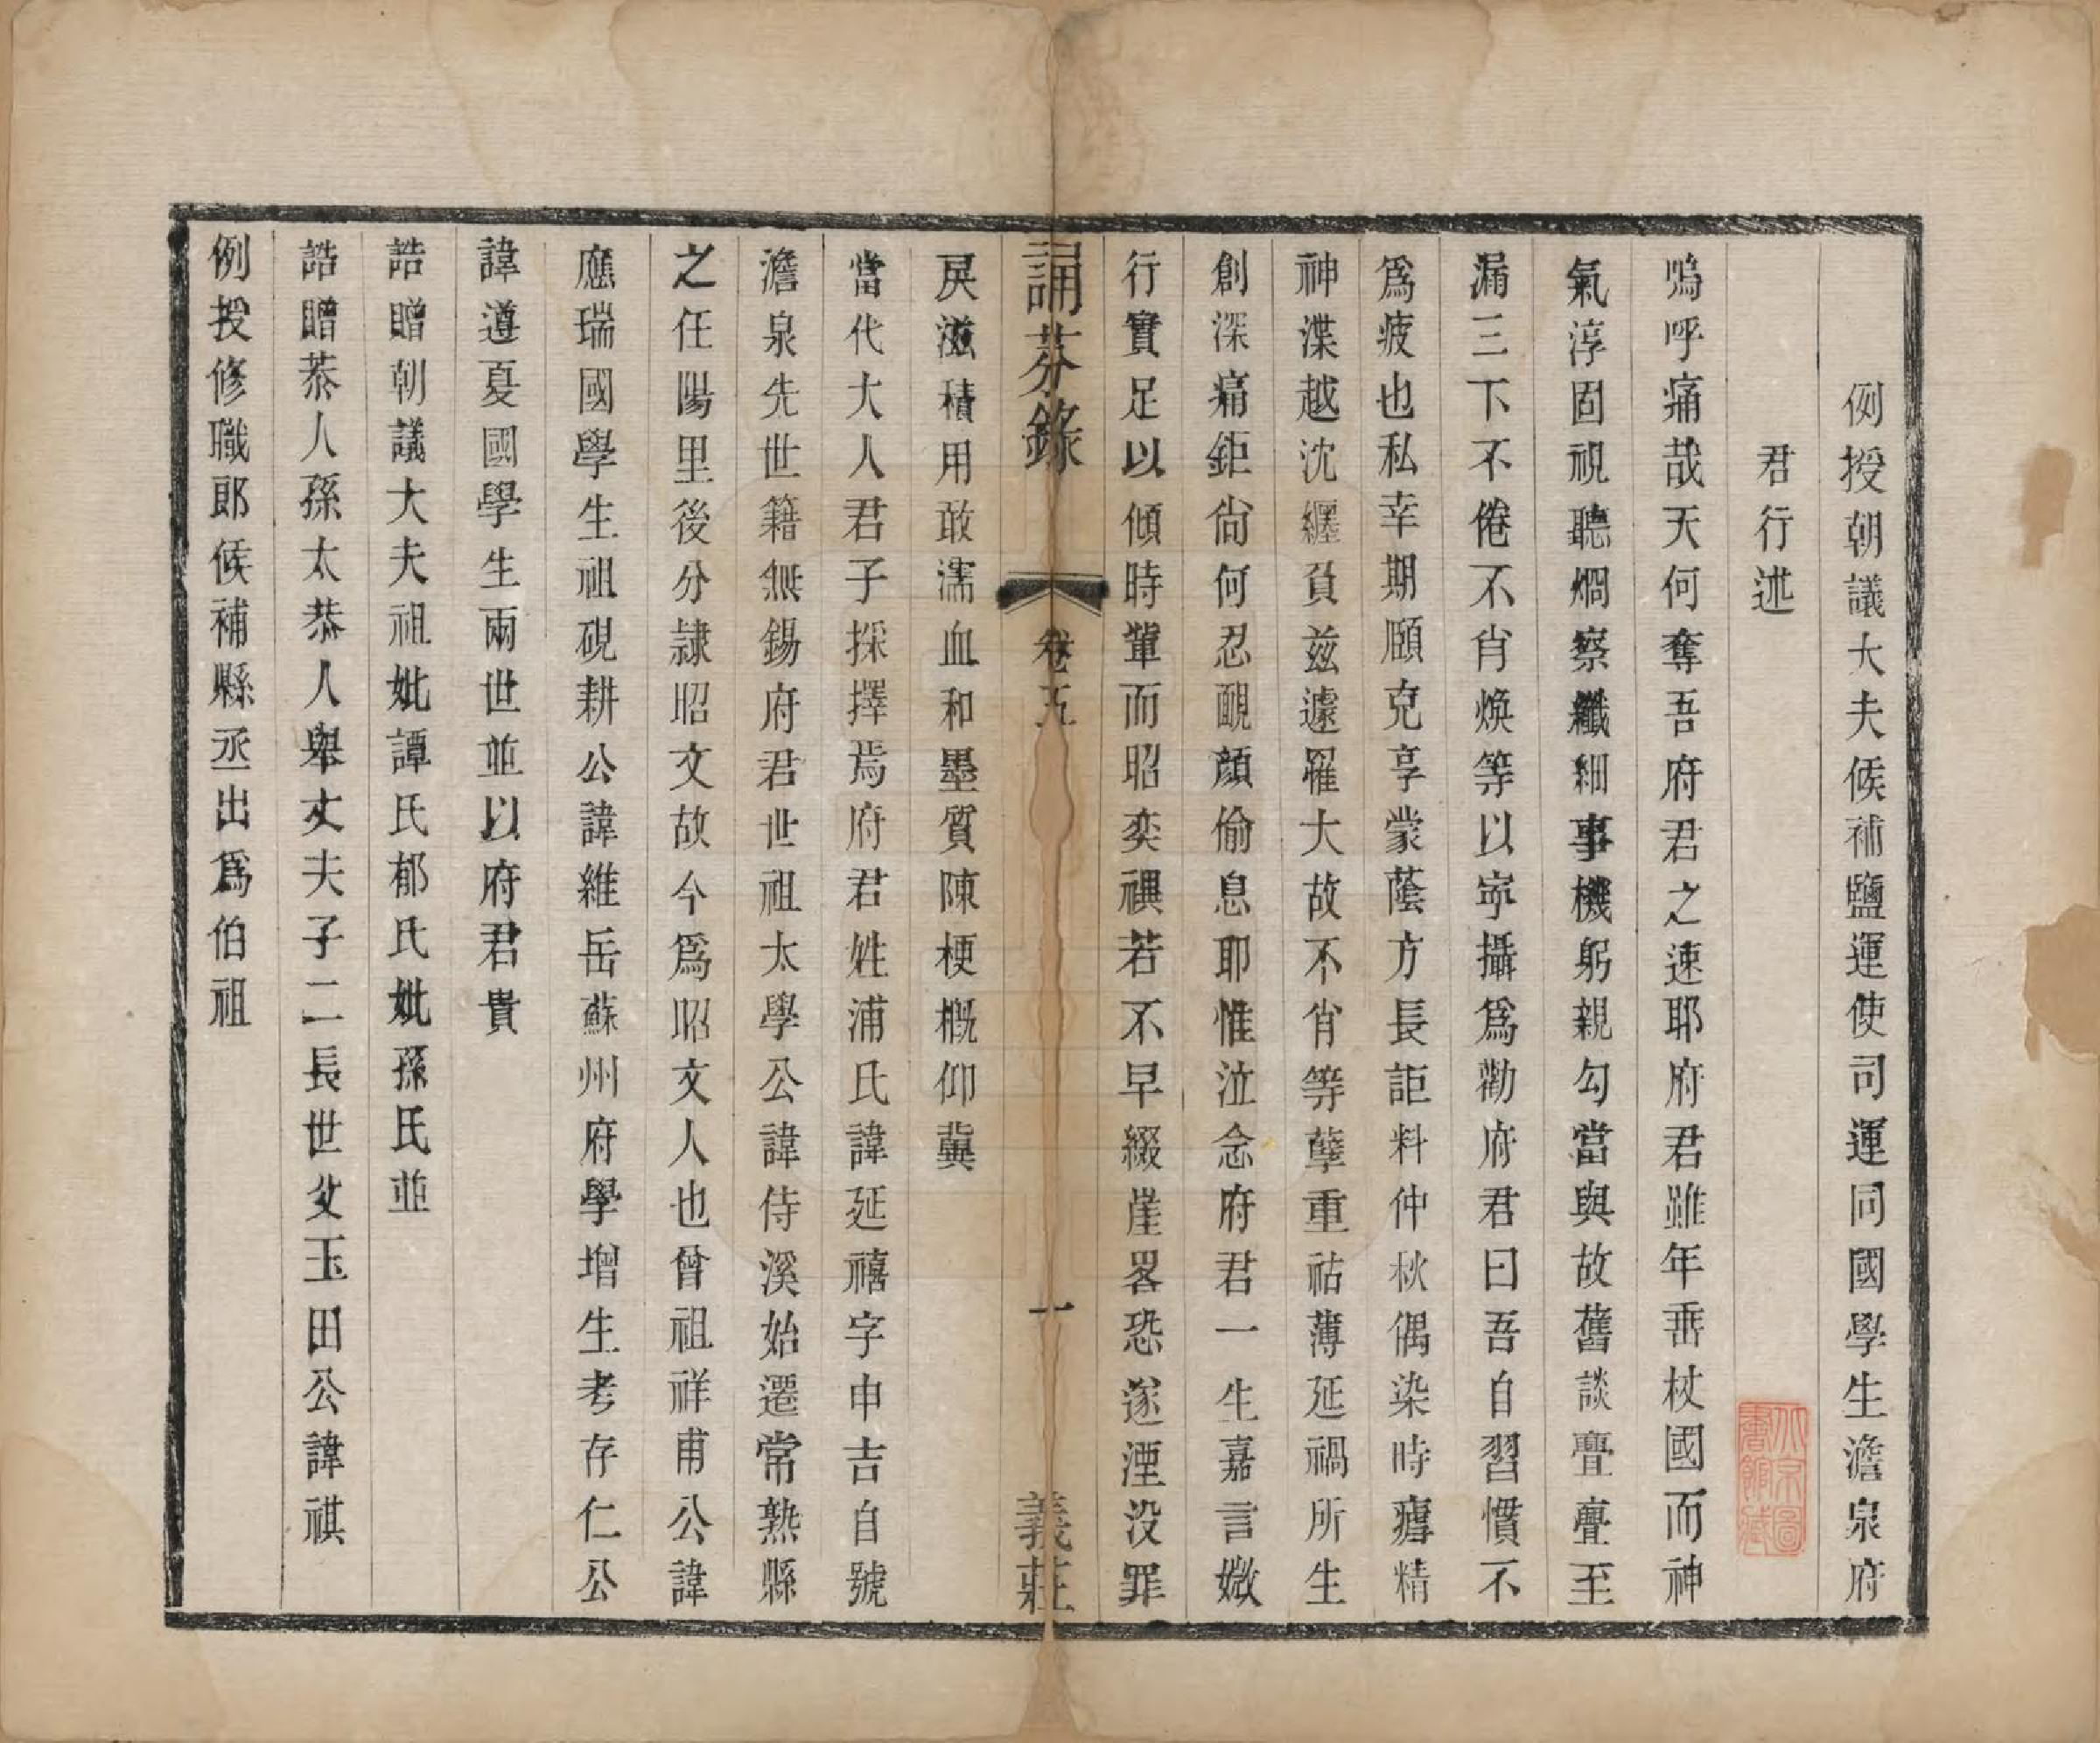 例授朝議大夫候補鹽運使司運同國學生澹泉府
君行述
嗚呼痛哉天何奪吾府君之速耶府君雖年垂杖國而神
氣淳固視聽烱察纖細事機躬親勾當與故舊談亹亹至
漏三下不倦不肖煥等以寧攝爲勸府君曰吾自習慣不
爲疲也私幸期頤克享蒙蔭方長詎料仲秋偶染時癉精
神渫越沈纏負兹遽罹大故不肖等孽重祜薄延禍所生
創深痛鉅尙何忍靦顔偷息耶惟泣念府君一生嘉言媺
行實足以傾時輩而昭奕禩若不早綴崖畧恐遂湮没罪
戾滋積用敢濡血和墨質陳梗概仰冀
當代大人君子採擇焉府君姓浦氏諱延禧字申吉自號
澹泉先世籍無錫府君世祖太學公諱侍溪始遷常熟縣
之任陽里後分隷昭文故今爲昭文人也曾祖祥甫公諱
應瑞國學生祖硯耕公諱維岳蘇州府學增生考存仁公
諱遵夏國學生兩世並以府君貴
誥贈朝議大夫祖妣譚氏郁氏妣孫氏並
誥贈恭人孫太恭人舉丈夫子二長世父玉田公諱祺
例授修職郎候補縣丞出爲伯祖
誦芬錄
卷五
一
義莊